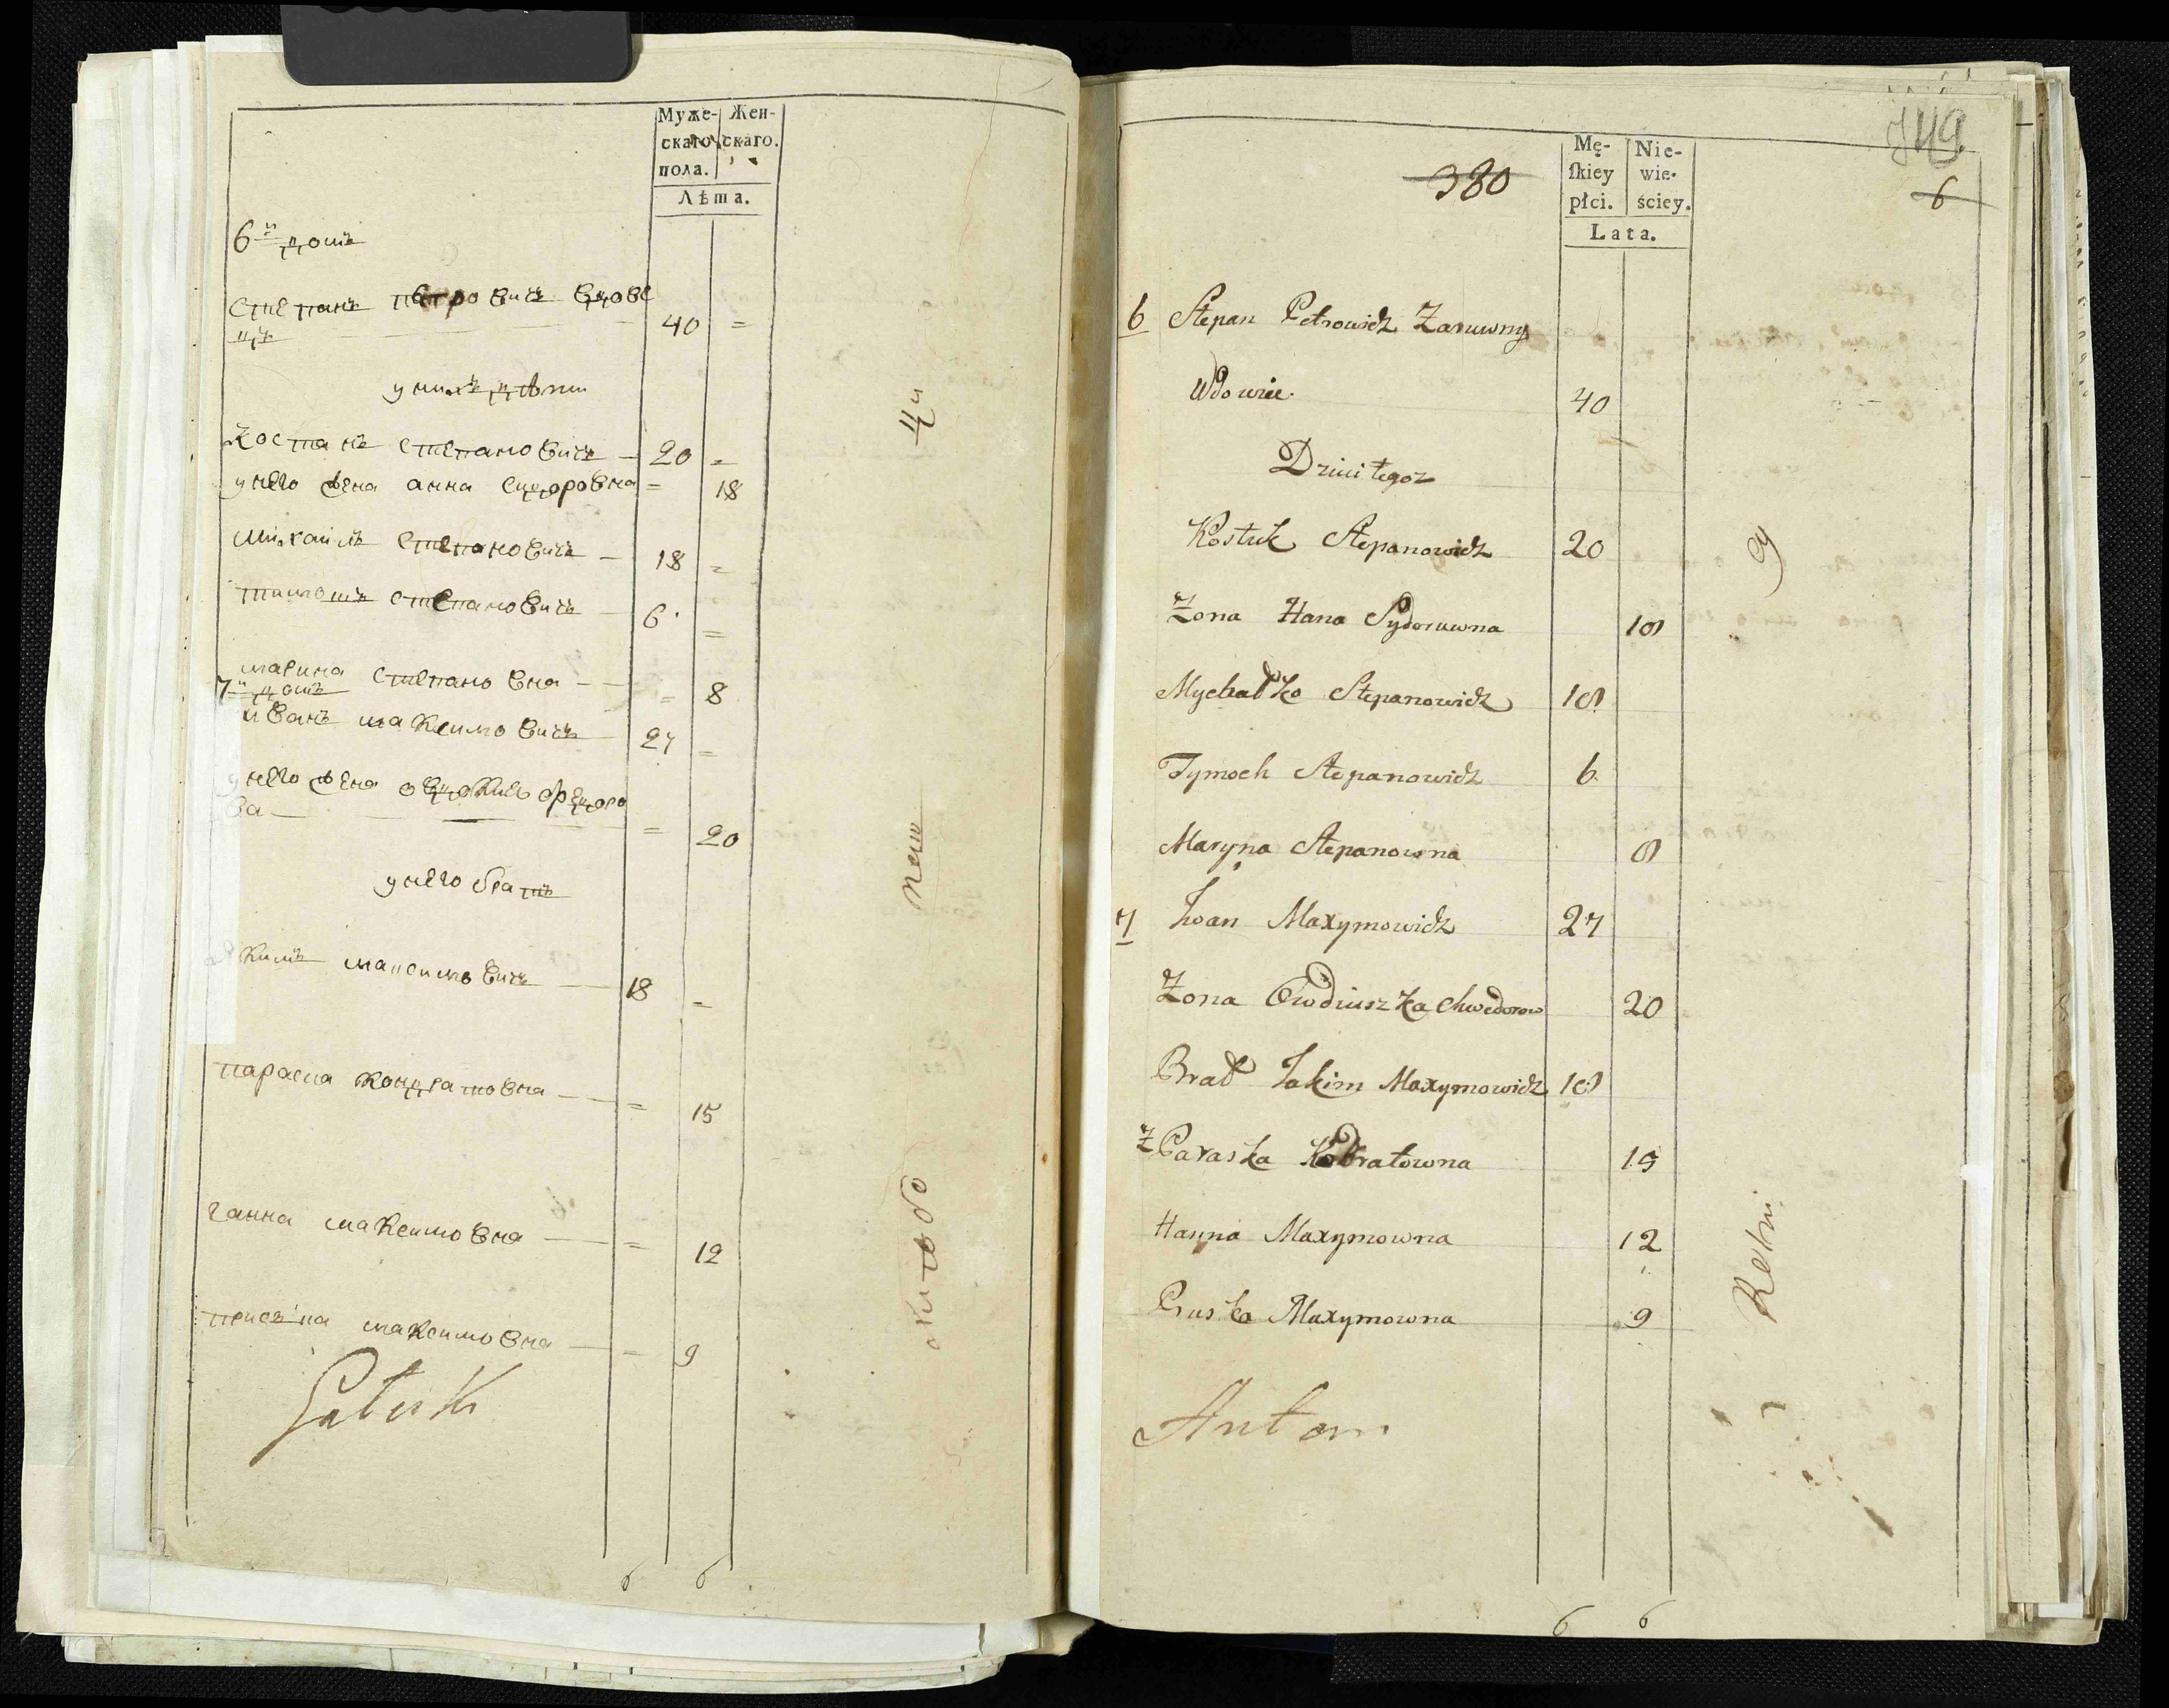 Муже-
скаго
пола.
Жен-
скаго.
Лѣта.
6й домъ
Степанъ Петровичъ вдове
цъ 40 =
у нихъ дѣти
Костанъ Степановичъ — 20 =
у него жена анна сидоровна = 18
Михаилъ Степановичъ — 18 =
Тимошъ Степановичъ — 6 =
марина Степановна — = 8
7й домъ
иванъ максимовичъ — 27 =
у него жена овдокиѣ федоро
ва — = 20
у него братъ
Якимъ максимовичъ — 18 =
параска кондратовна — = 15
ганна максимовна — = 12
приська максимовна — = 9
6 6
380
Mę-
skiey
płci.
Nie-
wie-
ściey.
Lata.
749
6
6 Stepan Petrowicz Zaruwny
Wdowiec 40
Dzieci tegoz
Kostuk Stepanowicz 20
Zona Hana Sydoruwna 18
Mychałko Stepanowicz 18
Tymoch Stepanowicz 6
Maryna Stepanowna 8
7 Iwan Maxymowicz 27
Zona Owdiuszka Chwedorow 20
Brat Jakim Maxymowicz 18
Ż Paraska Kodratowna 15
Hanna Maxymowna 12
Pruska Maxymowna 9
Antoni
6 6